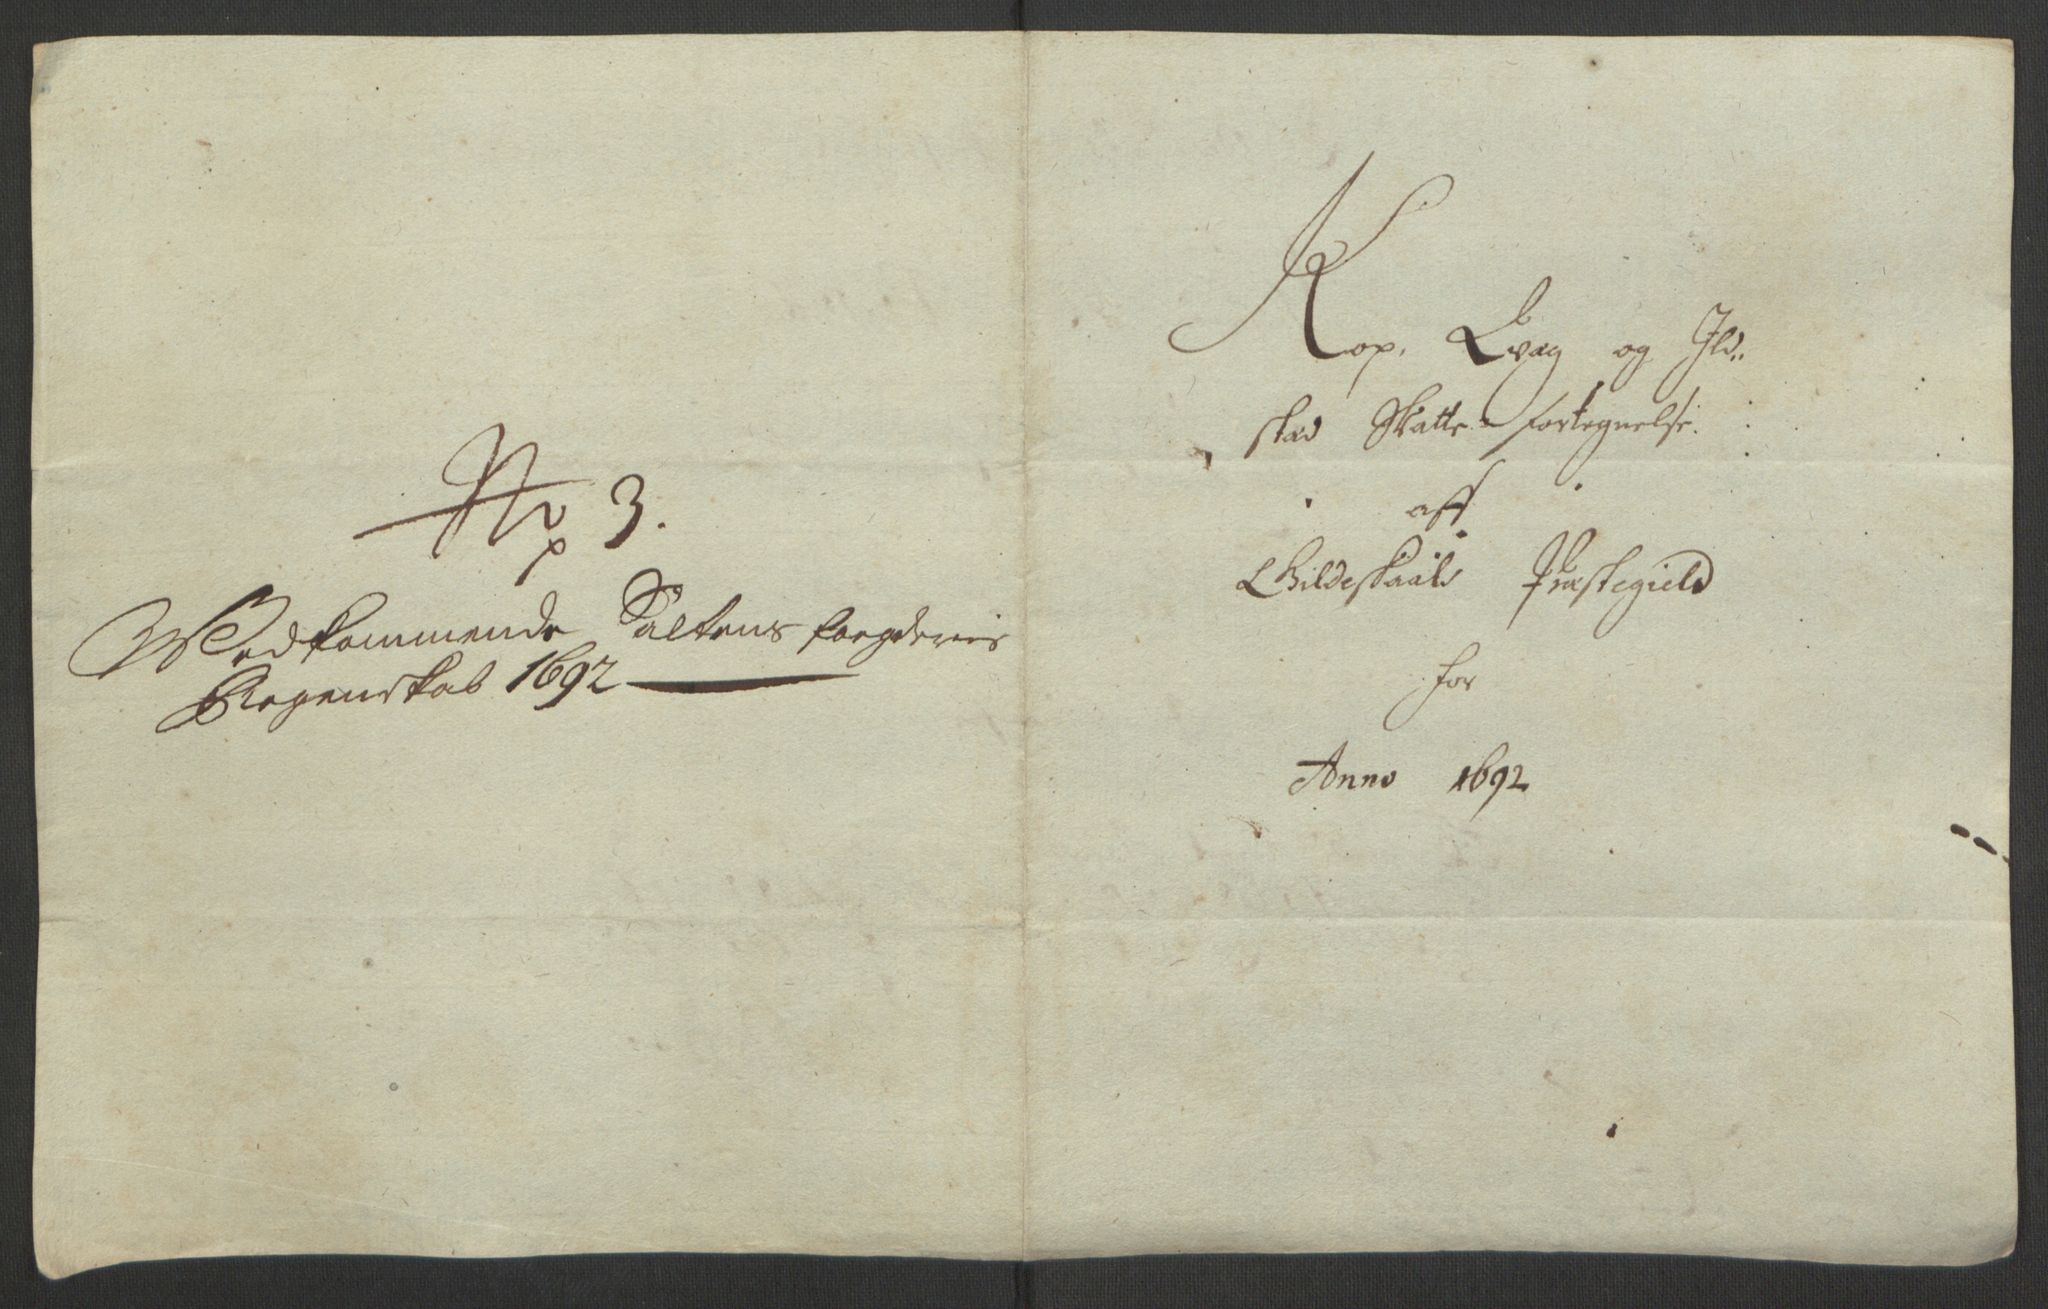 No 3.
Vedkommende Saltens fogderies
Regenskab 1692
Kop. Qvæg og Ild„
stæd Skatte fortegnelse.
aff
Gildeskaals Præstegield
for
Anno 1692